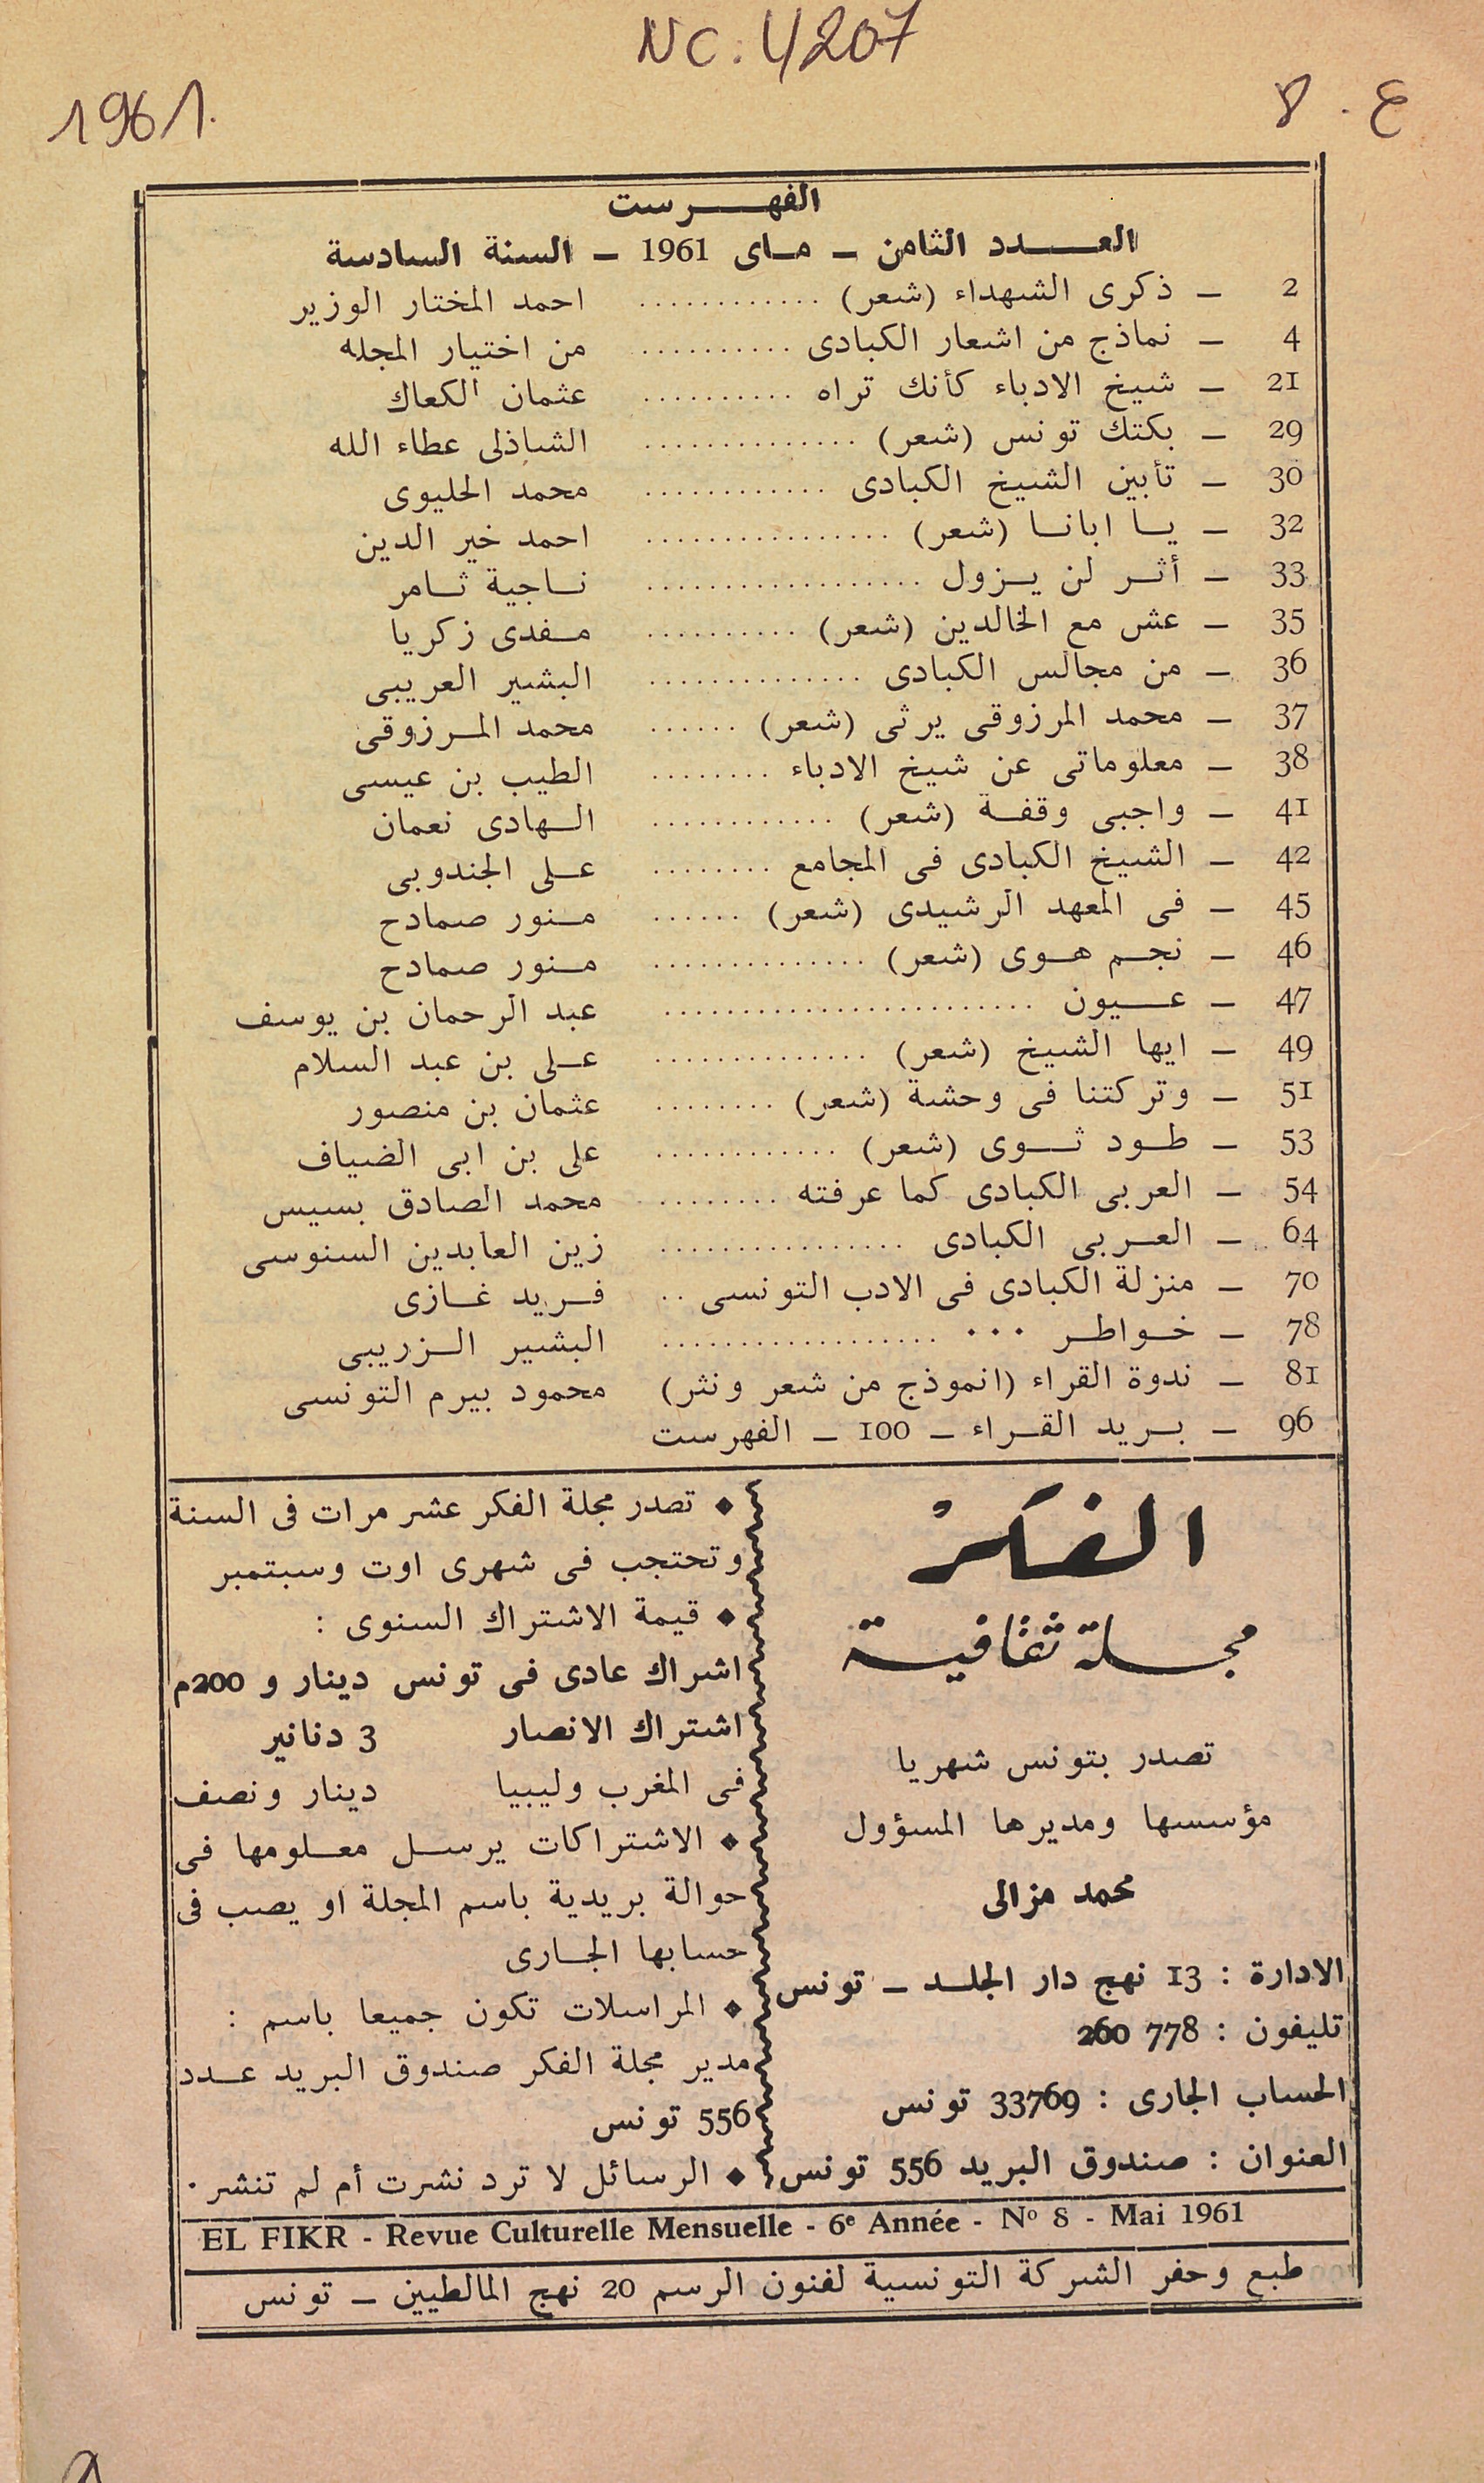 NC. 4207
ع. 8
1961.
الفهرست
العدد الثامن – ماى 1961 – السنة السادسة
2 – ذكرى الشهداء (شعر) ............ احمد المختار الوزير
4 – نماذج من اشعار الكبادى .......... من اختيار المجله
21 – شيخ الادباء كأنك تراه .......... عثمان الكعاك
29 – بكتك تونس (شعر) .............. الشاذلى عطاء الله
30 – تأبين الشيخ الكبادى ............ محمد الحليوى
32 – يا ابانا (شعر) ................ احمد خير الدين
33 – أثر لن يزول .................. ناجية ثامر
35 – عش مع الخالدين (شعر) .......... مفدى زكريا
36 – من مجالس الكبادى .............. البشير العريبى
37 – محمد المرزوقى يرثى (شعر) ...... محمد المرزوقى
38 – معلوماتى عن شيخ الادباء ........ الطيب بن عيسى
41 – واجبى وقفة (شعر) ............ الهادى نعمان
42 – الشيخ الكبادى فى المجامع ........ على الجندوبى
45 – فى المعهد الرشيدى (شعر) ...... منور صمادح
46 – نجم هوى (شعر) .............. منور صمادح
47 – عيون ........................ عبد الرحمان بن يوسف
49 – ايها الشيخ (شعر) .............. على بن عبد السلام
51 – وتركتنا فى وحشة (شعر) ........ عثمان بن منصور
53 – طود ثوى (شعر) ............ على بن ابى الضياف
54 – العربى الكبادى كما عرفته ........ محمد الصادق بسيس
64 – العربى الكبادى ................ زين العابدين السنوسى
70 – منزلة الكبادى فى الادب التونسى .. فريد غازى
78 – خواطر ... .................. البشير الزريبى
81 – ندوة القراء (انموذج من شعر ونثر) محمود بيرم التونسى
96 – بريد القراء – 100 – الفهرست
الفكر
مجلة ثقافية
تصدر بتونس شهريا
مؤسسها ومديرها المسؤول
محمد مزالى
الادارة : 13 نهج دار الجلد – تونس
تليفون : 778 260
الحساب الجارى : 33769 تونس
العنوان : صندوق البريد 556 تونس
◆ تصدر مجلة الفكر عشر مرات فى السنة
وتحتجب فى شهرى اوت وسبتمبر
◆ قيمة الاشتراك السنوى :
اشراك عادى فى تونس دينار و 200م
اشتراك الانصار 3 دنانير
فى المغرب وليبيا دينار ونصف
◆ الاشتراكات يرسل معلومها فى
حوالة بريدية باسم المجلة او يصب فى
حسابها الجارى
◆ المراسلات تكون جميعا باسم :
مدير مجلة الفكر صندوق البريد عدد
556 تونس
◆ الرسائل لا ترد نشرت أم لم تنشر .
EL FIKR - Revue Culturelle Mensuelle - 6e Année - No 8 - Mai 1961
طبع وحفر الشركة التونسية لفنون الرسم 20 نهج المالطيين – تونس